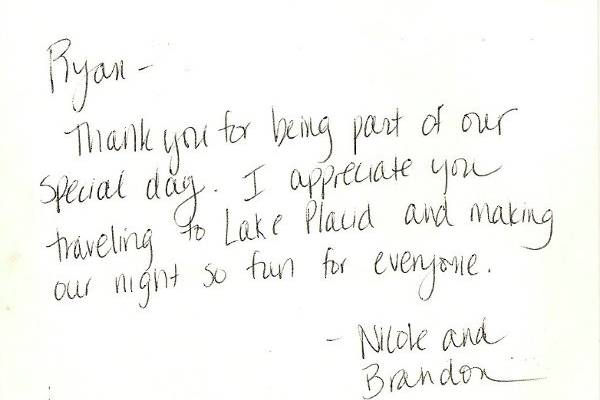 Ryan -
Thank you for being part of our
special day. I appreciate you
traveling to Lake Placid and making
our night so fun for everyone.
- Nicole and
Brandon